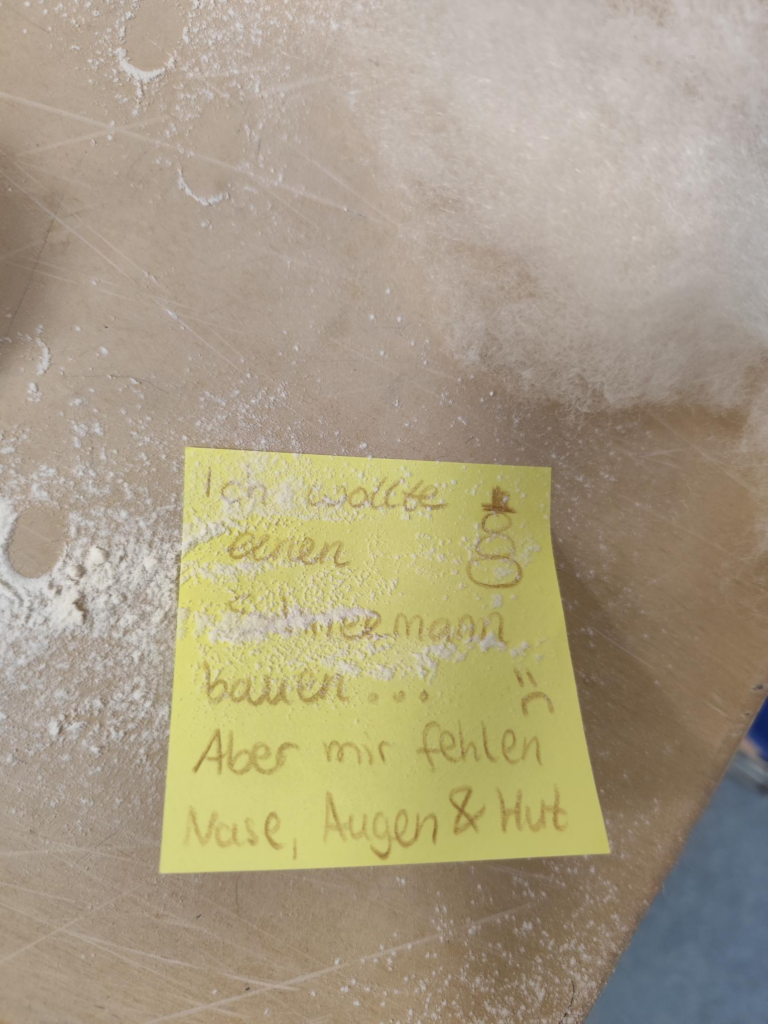 Ich wollte
einen
Schneemann
bauen...
Aber mir fehlen
Nase, Augen & Hut